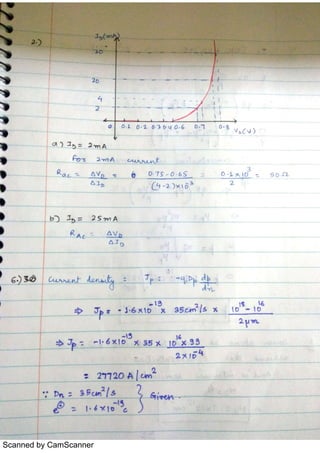 2.)
I_D(mA)
30
20
4
2
0 0.1 0.2 0.3 0.4 0.6 0.7 0.8 V_D(V)
a) I_D = 2mA
For 2mA current
R_ac = ΔV_D / ΔI_D = 0.75-0.65 / (4-2)×10^-3 = 0.1×10^3 / 2 = 50Ω
b) I_D = 25mA
R_AC = ΔV_D / ΔI_D
6.) Current density = J_p = -q D_p dp/dx
⇒ J_p = -1.6×10^-19 × 35cm²/s × 10^18 - 10^16 / 2μm
⇒ J_p = -1.6×10^-19 × 35 × 10^16 × 99 / 2×10^-4
= 27720 A/cm²
∵ D_n = 35cm²/s } Given.
e = 1.6×10^-19 c
Scanned by CamScanner